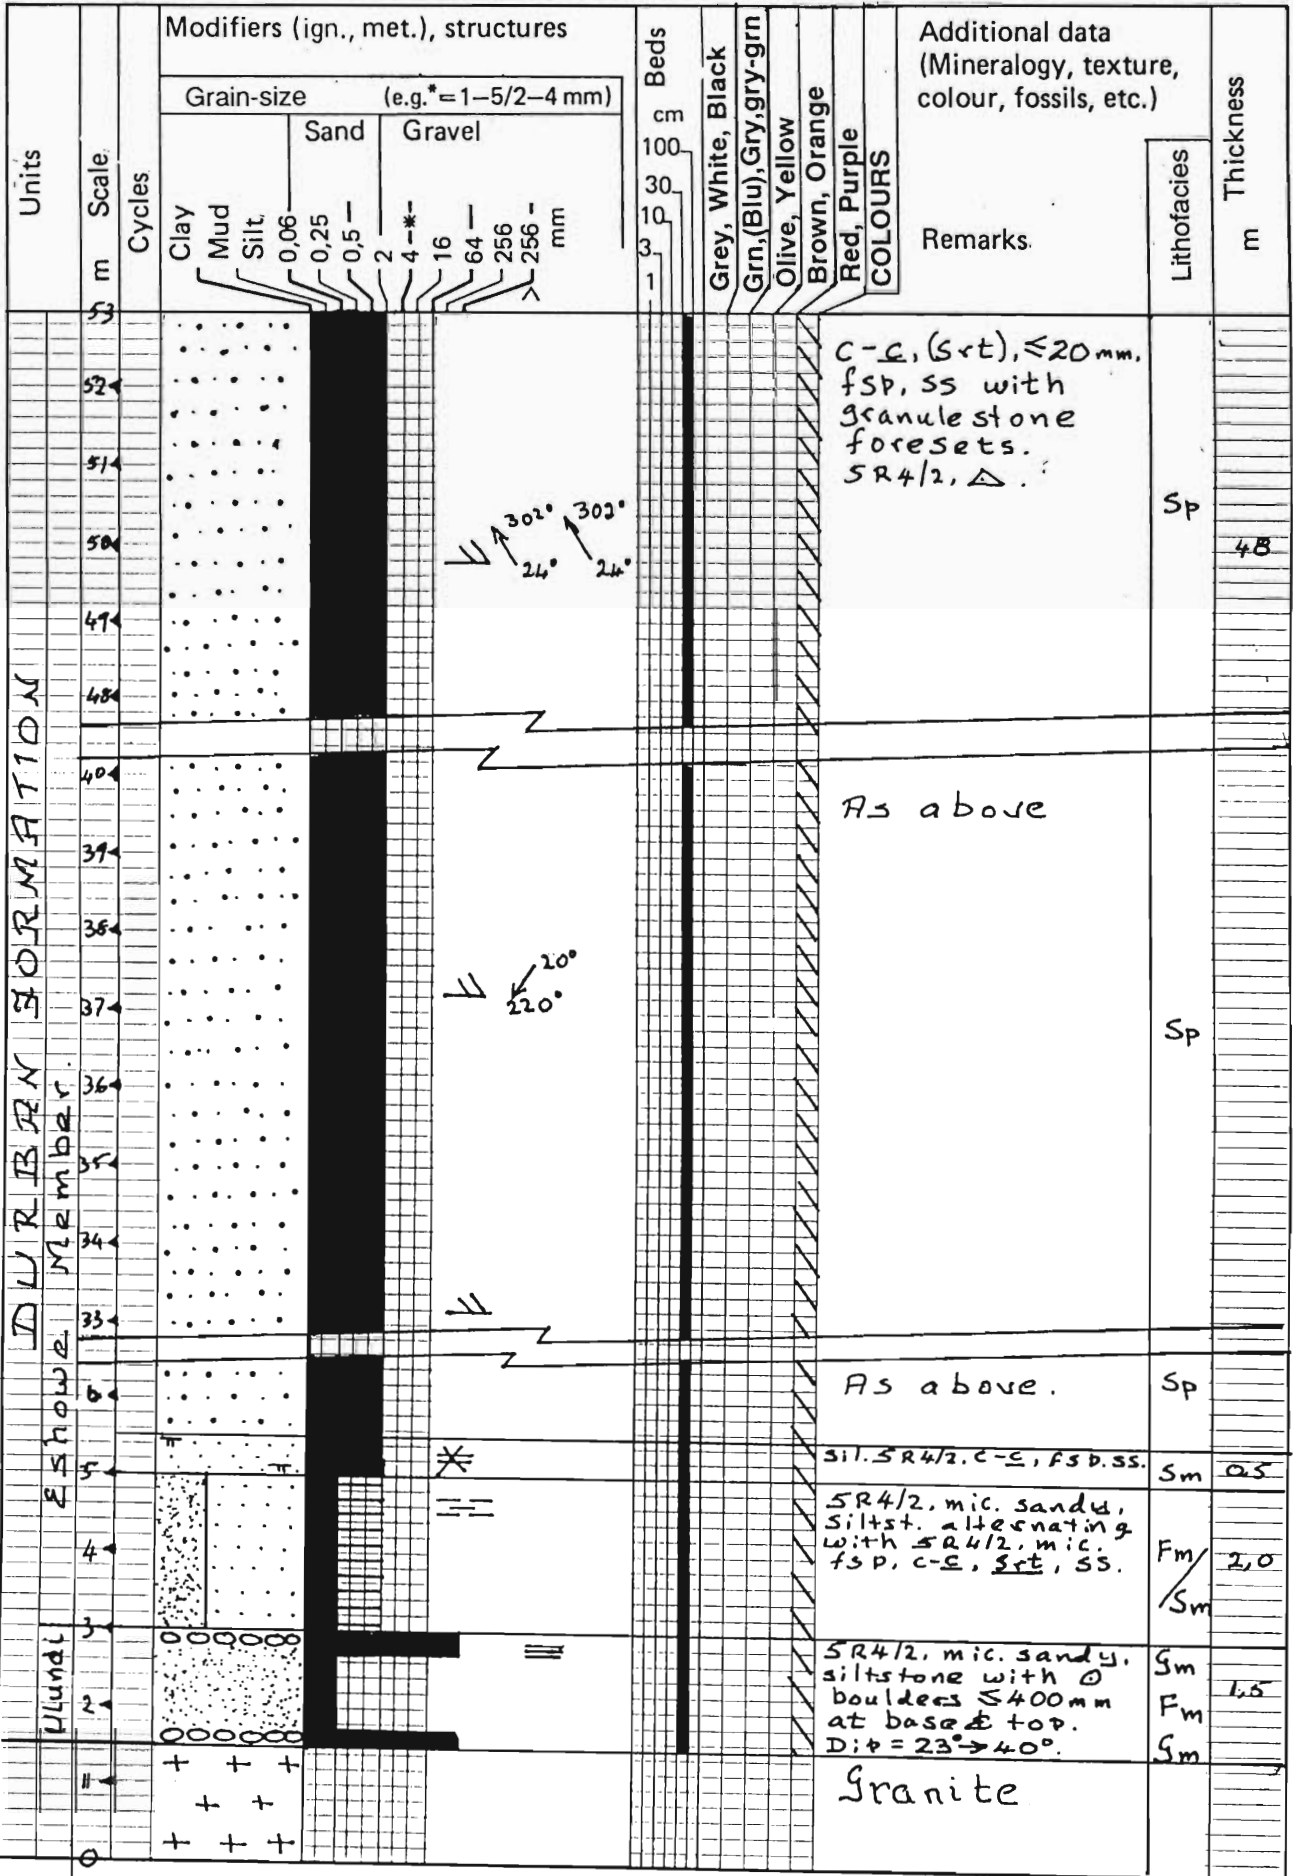 Units
Scale
m
Cycles
Modifiers (ign., met.), structures
Grain-size (e.g.*=1–5/2–4 mm)
Sand Gravel
Clay
Mud
Silt.
0,06
0,25
0,5
2
4 –*–
16
64
256
>256
mm
Beds
cm
100
30
10
3
1
Grey, White, Black
Grn,(Blu),Gry,gry-grn
Olive, Yellow
Brown, Orange
Red, Purple
COLOURS
Additional data
(Mineralogy, texture,
colour, fossils, etc.)
Remarks.
Lithofacies
Thickness
m
DURBAN FORMATION
Eshowe Member.
Ulundi
53
52
51
50
49
48
40
39
38
37
36
35
34
33
6
5
4
3
2
1
0
302° 302°
24° 24°
20°
220°
c-c, (srt), ≤20mm,
fsp, ss with
granulestone
foresets.
5R4/2, △.
Sp
48
As above
Sp
As above.
Sp
Sil. 5R4/2. c-c, fsp. ss.
Sm
0,5
5R4/2, mic. sandy,
siltst. alternating
with 5R4/2, mic.
fsp, c-c, srt, ss.
Fm/
Sm
2,0
5R4/2, mic. sandy,
siltstone with ⊙
boulders ≤400mm
at base & top.
Dip = 23°→40°.
Gm
Fm
Gm
1,5
Granite